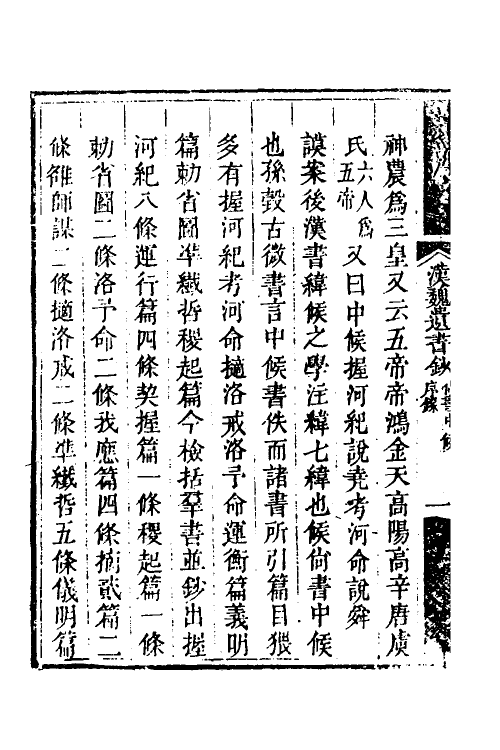 漢魏遺書鈔
尚書中候
序錄
一
神農爲三皇又云五帝帝鴻金天高陽高辛唐虞
氏六人爲五帝又曰中候握河紀說堯考河命說舜
誤案後漢書緯候之學注緯七緯也候尚書中候
也孫瑴古微書言中候書佚而諸書所引篇目猥
多有握河紀考河命擿洛戒洛予命運衡篇義明
篇勅省圖準纖哲稷起篇今檢括羣書並鈔出握
河紀八條運行篇四條契握篇一條稷起篇一條
勅省圖二條洛予命二條我應篇四條摘貳篇二
條雒師謀二條擿洛戒二條準纖哲五條儀明篇